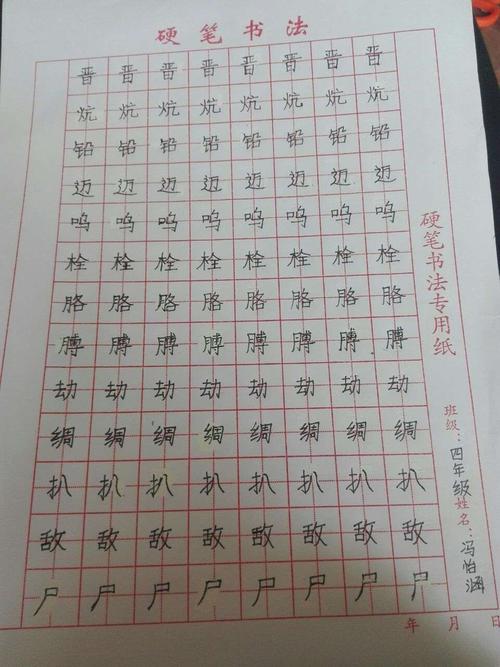 硬笔书法
晋晋晋晋晋晋晋晋
炕炕炕炕炕炕炕炕
铅铅铅铅铅铅铅铅
迈迈迈迈迈迈迈迈
呜呜呜呜呜呜呜呜
栓栓栓栓栓栓栓栓
胳胳胳胳胳胳胳胳
膊膊膊膊膊膊膊膊
劫劫劫劫劫劫劫劫
绸绸绸绸绸绸绸绸
扒扒扒扒扒扒扒扒
敌敌敌敌敌敌敌敌
尸尸尸尸尸尸尸尸
硬笔书法专用纸
班级：四年级姓名：冯怡涵
年 月 日